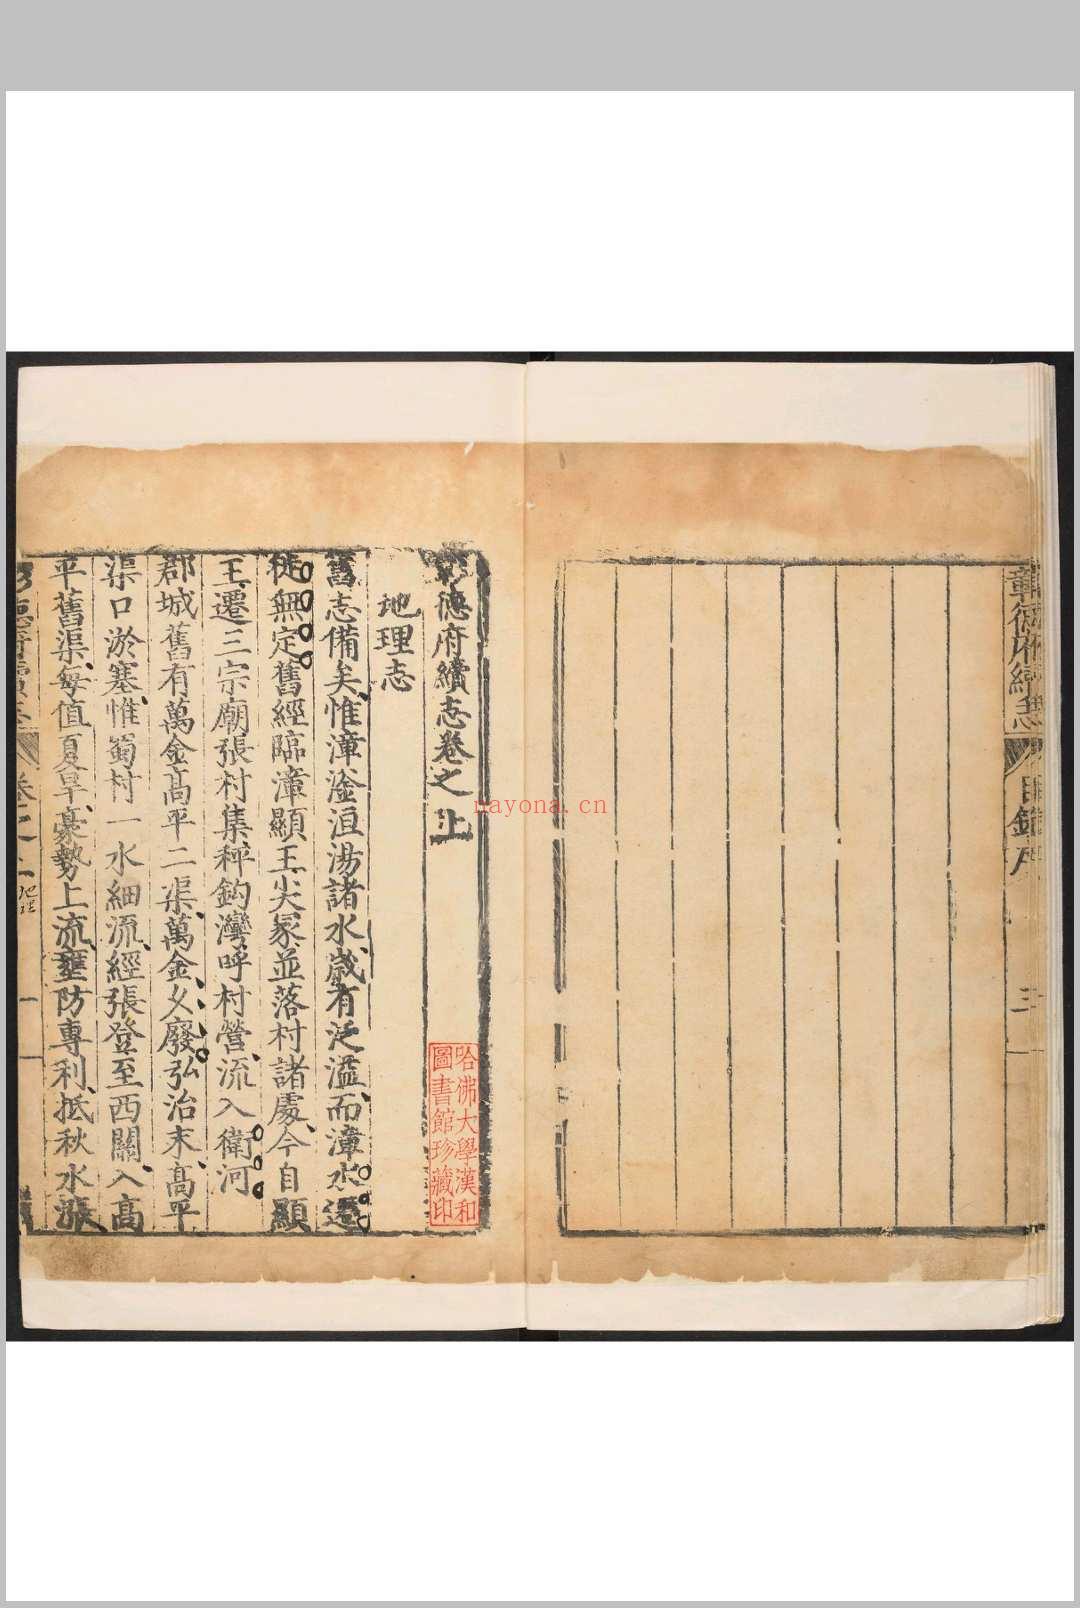 彰德府續志
目錄
三
彰德府續志卷之上
地理志
舊志備矣惟漳滏洹湯諸水歲有泛溢而漳水遷
徙無定舊經臨漳顯王尖冢並落村諸處今自顯
王遷三宗廟張村集秤鈎灣呼村營流入衛河
郡城舊有萬金高平二渠萬金乆廢弘治末高平
渠口淤塞惟蜀村一水細流經張登至西關入高
平舊渠每值夏旱豪勢上流壅防專利抵秋水漲
哈佛大學漢和
圖書館珍藏印
nayona.cn
地理
一